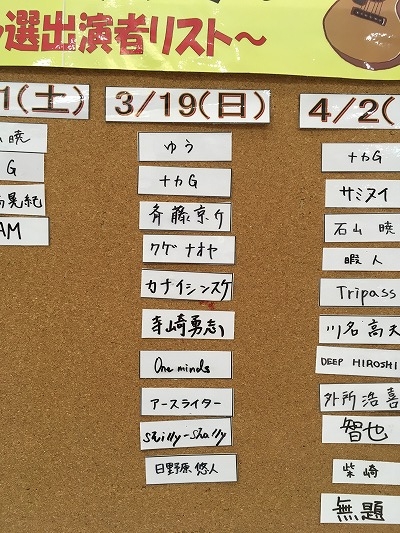 選出演者リスト～
1(土)
暁
G
晃純
AM
3/19(日)
ゆう
ナカG
斉藤京介
クゲ ナオヤ
カナイシンスケ
寺崎勇志
One minds
アースライター
shilly-shally
日野原 悠人
4/2(
ナカG
サミヌイ
石山 暁
暇人
Tripass
川名高大
DEEP HIROSHI
外所浩喜
智也
柴崎
無題